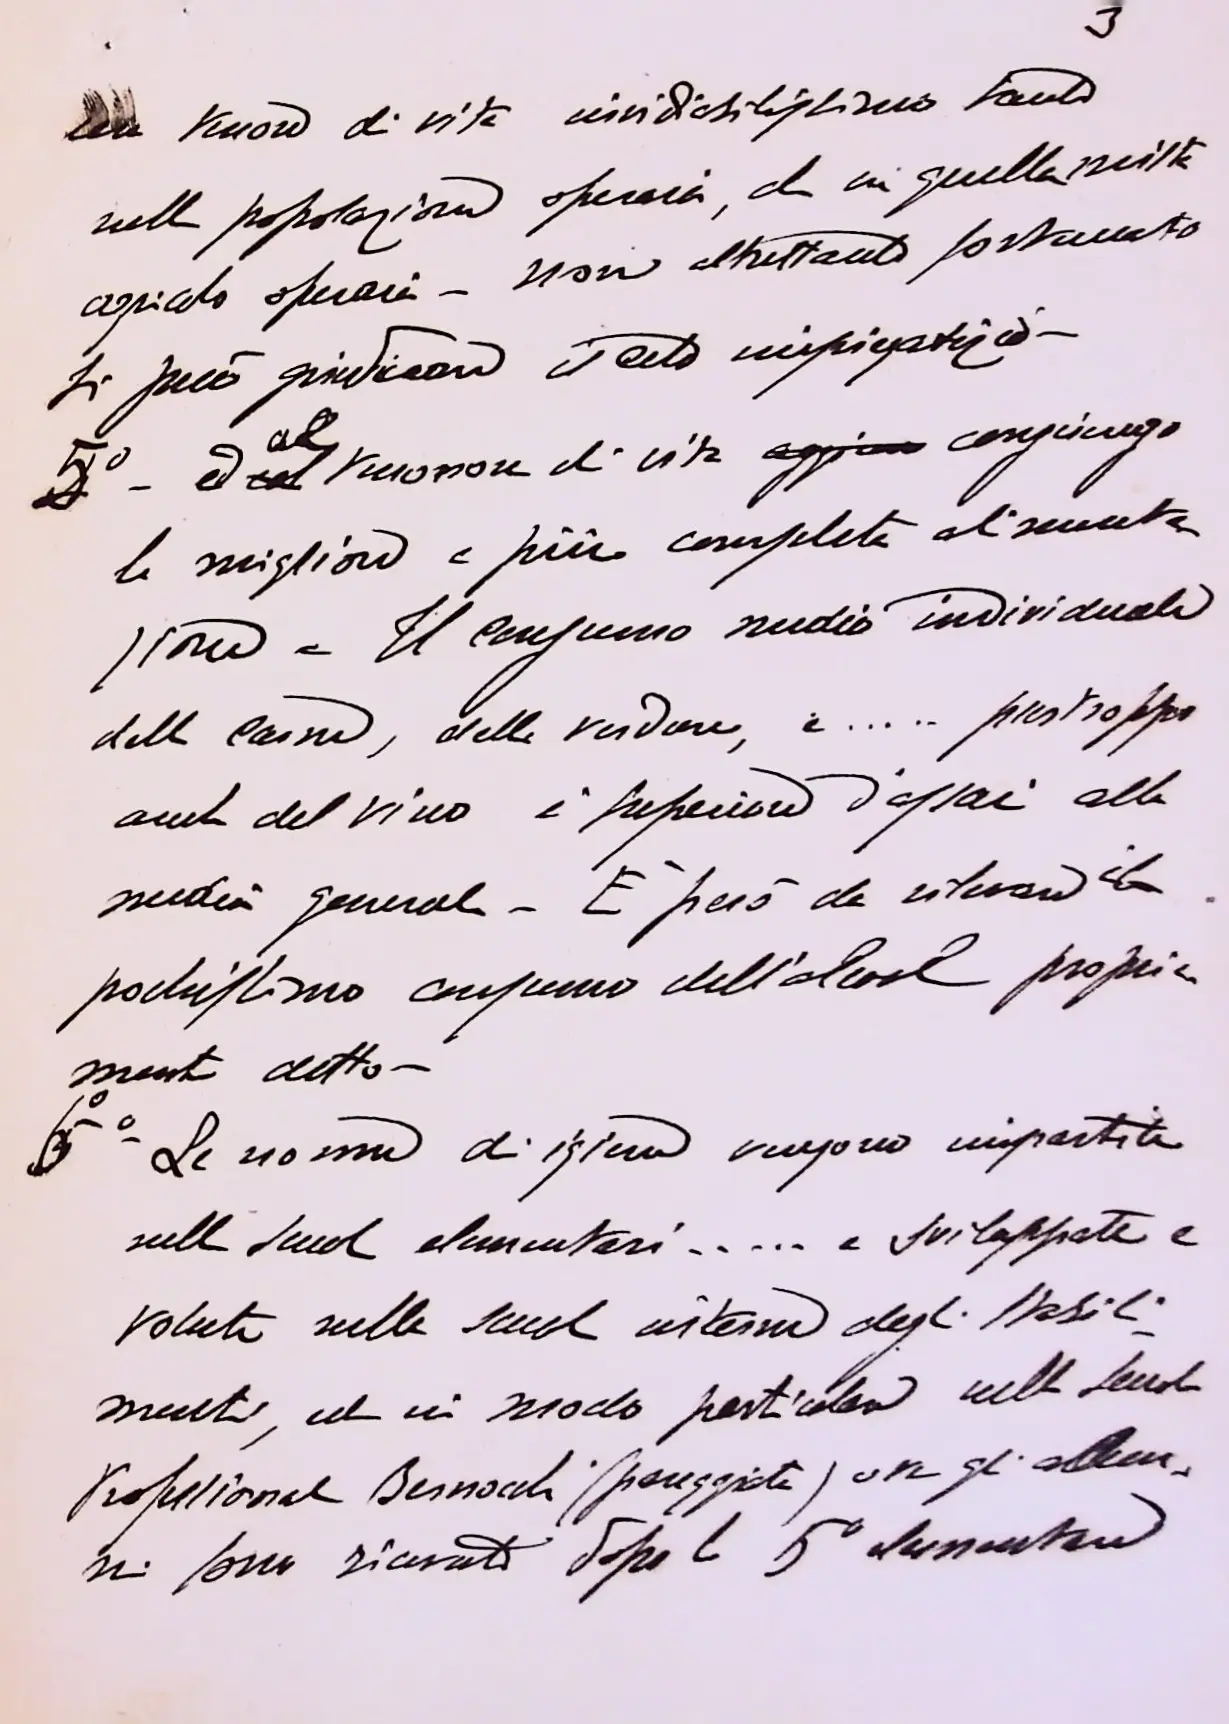 3
un tenore di vita invidiabilissimo tanto
nella popolazione operaia, che in quella mista
agricolo operaia – non altrettanto fortunato
si può giudicare il ceto impiegatizio –
5° – ed al tenore di vita congiungo
la migliore e più completa alimenta
zione – Il consumo medio individuale
della carne, delle verdure, e ..... purtroppo
anche del vino è superiore d'assai alla
media generale – È però da rilevare il
pochissimo consumo dell'alcool propria
mente detto –
6° – Le norme di igiene vengono impartite
nelle scuole elementari ..... e sviluppate e
volute nelle scuole interne degli stabili-
menti, ed in modo particolare nella scuola
professionale Bernocchi (pareggiata) ove gli alun-
ni sono ricevuti dopo la 5° elementare